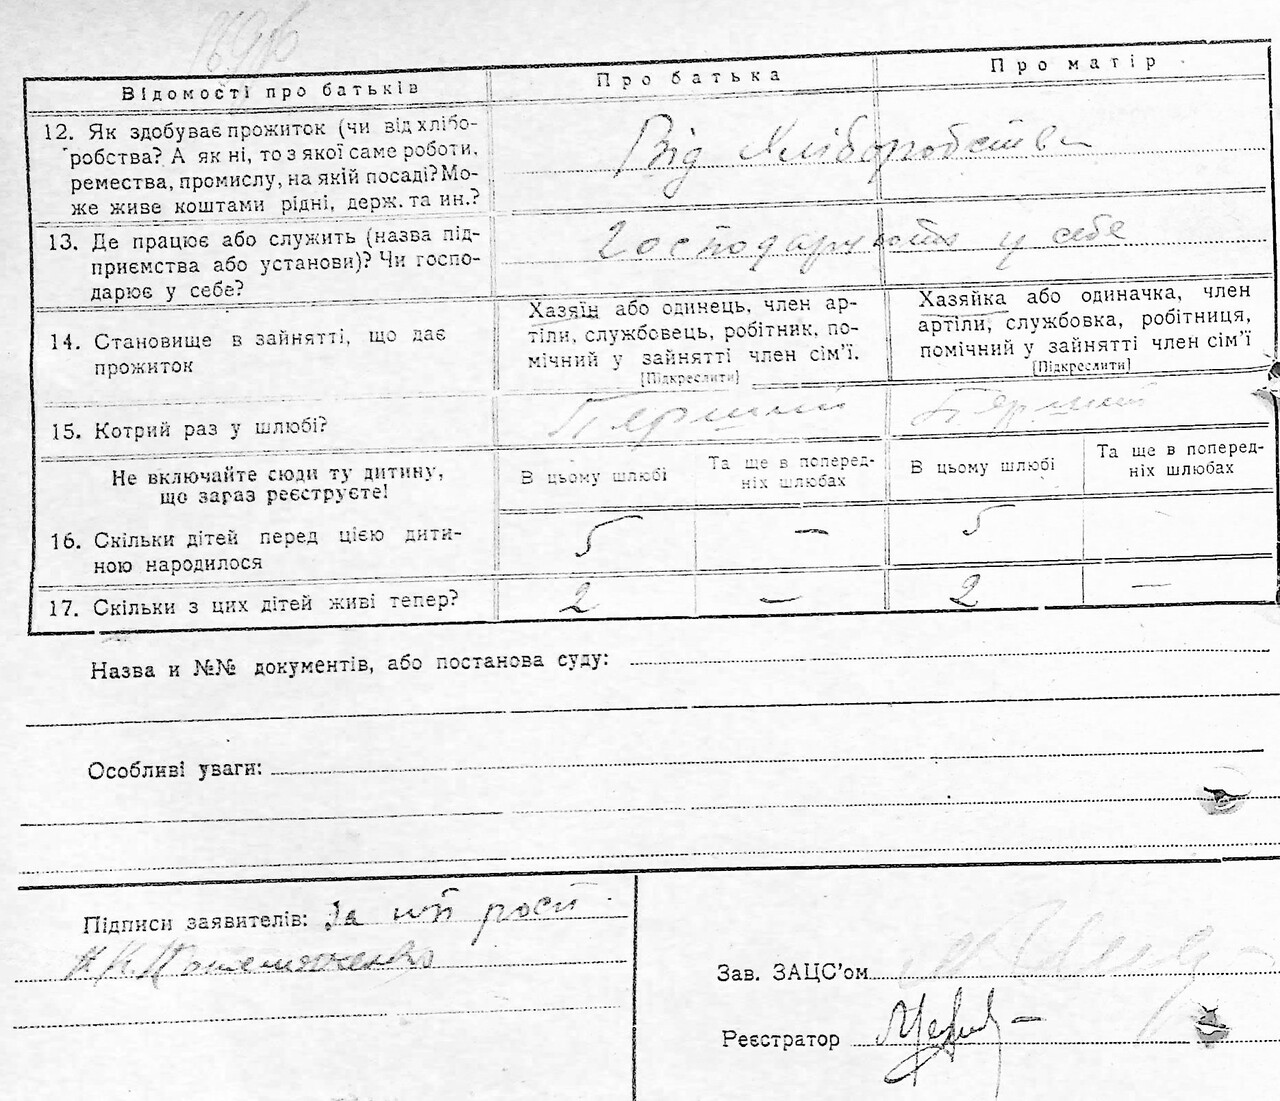 Відомості про батьків
Про батька
Про матір
12. Як здобуває прожиток (чи від хлібо-
робства? А як ні, то з якої саме роботи,
ремества, промислу, на якій посаді? Мо-
же живе коштами рідні, держ. та ин.?
Від хліборобства
13. Де працює або служить (назва під-
приємства або установи)? Чи госпо-
дарює у себе?
Господарюють у себе
14. Становище в зайнятті, що дає
прожиток
Хазяїн або одинець, член ар-
тіли, службовець, робітник, по-
мічний у зайнятті член сім'ї.
[Підкреслити]
Хазяйка або одиначка, член
артіли, службовка, робітниця,
помічний у зайнятті член сім'ї
[Підкреслити]
15. Котрий раз у шлюбі?
Перший
Перший
Не включайте сюди ту дитину,
що зараз реєструєте!
В цьому шлюбі
Та ще в поперед-
ніх шлюбах
В цьому шлюбі
Та ще в поперед-
ніх шлюбах
16. Скільки дітей перед цією дити-
ною народилося
5 — 5
17. Скільки з цих дітей живі тепер?
2 — 2 —
Назва и №№ документів, або постанова суду:
Особливі уваги:
Підписи заявителів: За
Зав. ЗАЦС'ом
Реєстратор